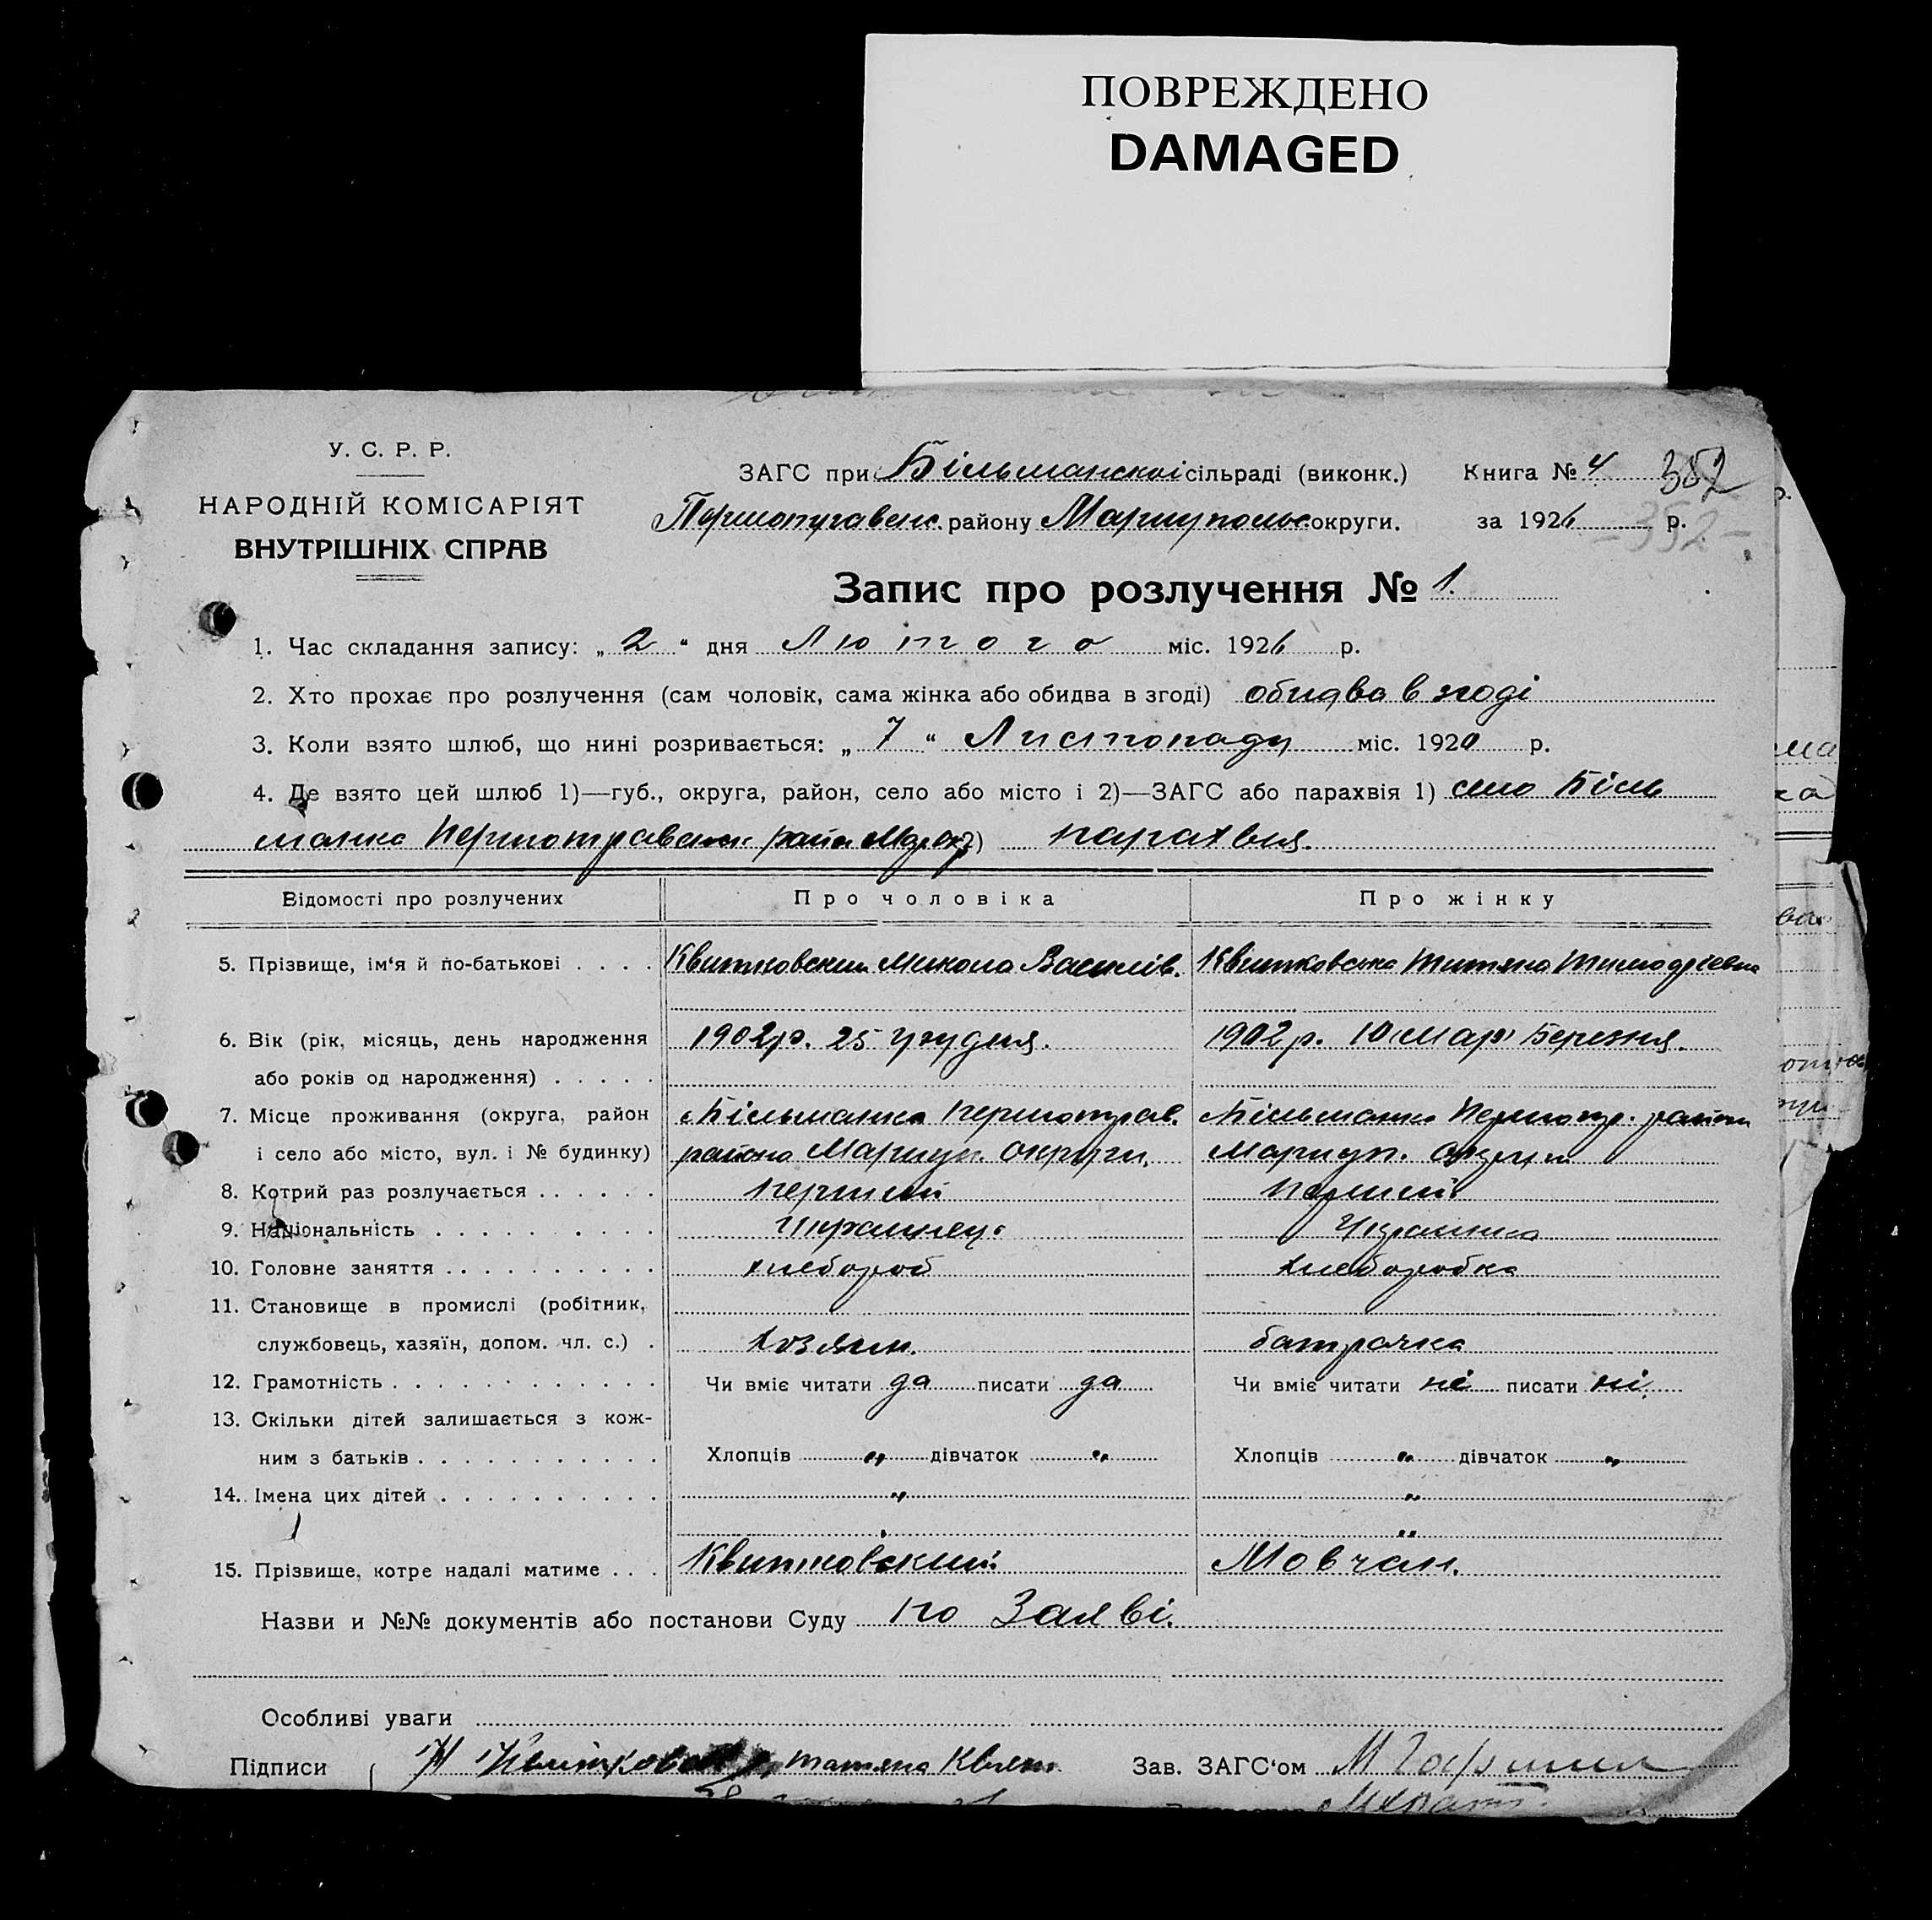 ПОВРЕЖДЕНО
DAMAGED
У. С. Р. Р.
НАРОДНІЙ КОМІСАРІЯТ
ВНУТРІШНІХ СПРАВ
ЗАГС при Більманскоі сільраді (виконк.) Книга № 4 352
району Мариупольс округи. за 1926 р.
-352-
Запис про розлучення № 1.
1. Час складання запису: „ 2 “ дня Лютого міс. 1926 р.
2. Хто прохає про розлучення (сам чоловік, сама жінка або обидва в згоді) обидва в згоді
3. Коли взято шлюб, що нині розривається: „ 7 “ Листопаду міс. 1920 р.
4. Де взято цей шлюб 1)—губ., округа, район, село або місто і 2)—ЗАГС або парахвія 1) село Біль
манка 2) парахвия.
Відомості про розлучених Про чоловіка Про жінку
5. Прізвище, ім‘я й по-батькові . . . . Квитковский Микола Василів. Квитковська
6. Вік (рік, місяць, день народження 1902р. 25 грудня. 1902 р. 10 Березня.
або років од народження) . . . . .
7. Місце проживання (округа, район с Більманка Першотрав. с Більманка Першотр. район
і село або місто, вул. і № будинку) района Мариуп. округи. Мариуп. округи
8. Котрий раз розлучається . . . . . . перший перший
9. Національність . . . . . . . . . Украинец. Украинка
10. Головне заняття . . . . . . . . . . хлебороб хлеборобка
11. Становище в промислі (робітник,
службовець, хазяїн, допом. чл. с.) . хозяин. батрачка
12. Грамотність . . . . . . . . . . . . Чи вміє читати да писати да Чи вміє читати ні писати ні.
13. Скільки дітей залишається з кож-
ним з батьків . . . . . . . . . . . Хлопців „ дівчаток „ Хлопців „ дівчаток „
14. Імена цих дітей . . . . . . . . . . „ „
„
15. Прізвище, котре надалі матиме . . . Квитковский Мовчан.
Назви и №№ документів або постанови Суду по Заяві.
Особливі уваги
Підписи Татяна Зав. ЗАГС‘ом